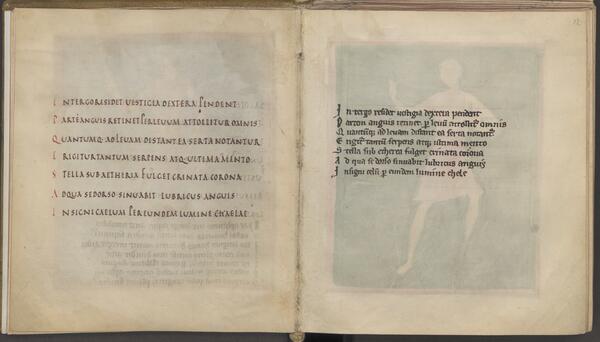 INTERGO RESIDET VESTIGIA DEXTERA PENDENT
PARTE ANGUIS RETINET PER LEVUM ATTOLLITUR OMNIS
QUANTUMQ AD LEVAM DISTANT EA SERTA NOTANTUR
ERIGITUR TANTUM SERPENS ATQ ULTIMA MENTO
STELLA SUB AETHERIA FULGET CRINATA CORONA
AD QUA SE DORSO SINUABIT LUBRICUS ANGUIS
INSIGNI CAELUM PER EUNDEM LUMINE CHAELAE
12
In tergo residet vestigia dextera pendent
anguis retinet
ea serta
serpens atq ultima mento
Stella sub etherea fulget crinata corona
Ad qua se dorso sinuabit lubricus anguis
Insigni celum p eundem lumine chele